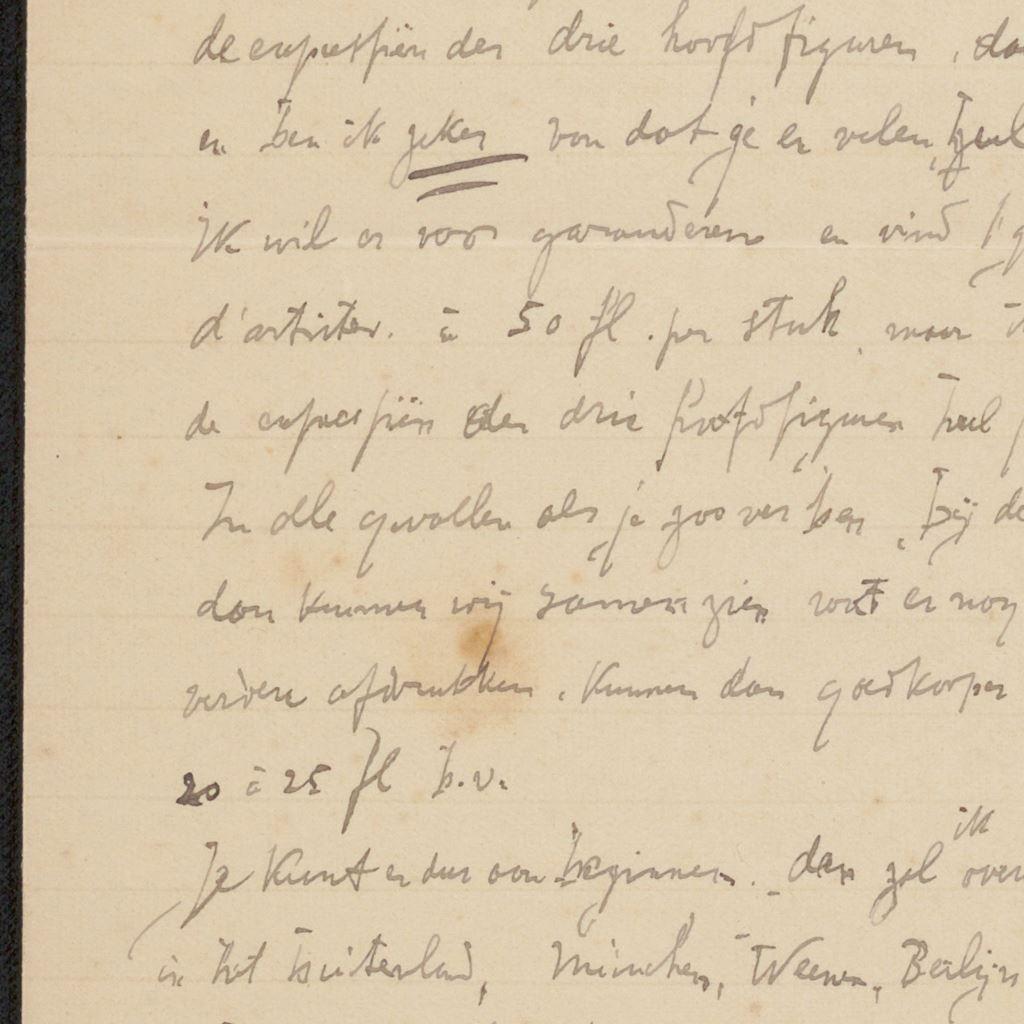 de expressiën der drie hoofdfiguren, da
en ben ik zeker van dat je er velen zul
Ik wil er voor garanderen en vind
d'artister. à 50 fl. per stuk, maar
de expressiën der drie hoofdfiguren heel
In alle gevallen als je zoo ver ben, bij de
dan kunnen wij samen zien wat er nog
verdere afdrukken. Kunnen dan goedkooper
20 à 25 fl b.v.
Je kunt er dus aan beginnen. dan zal ik over
in het buitenland, München, Weenen, Berlijn